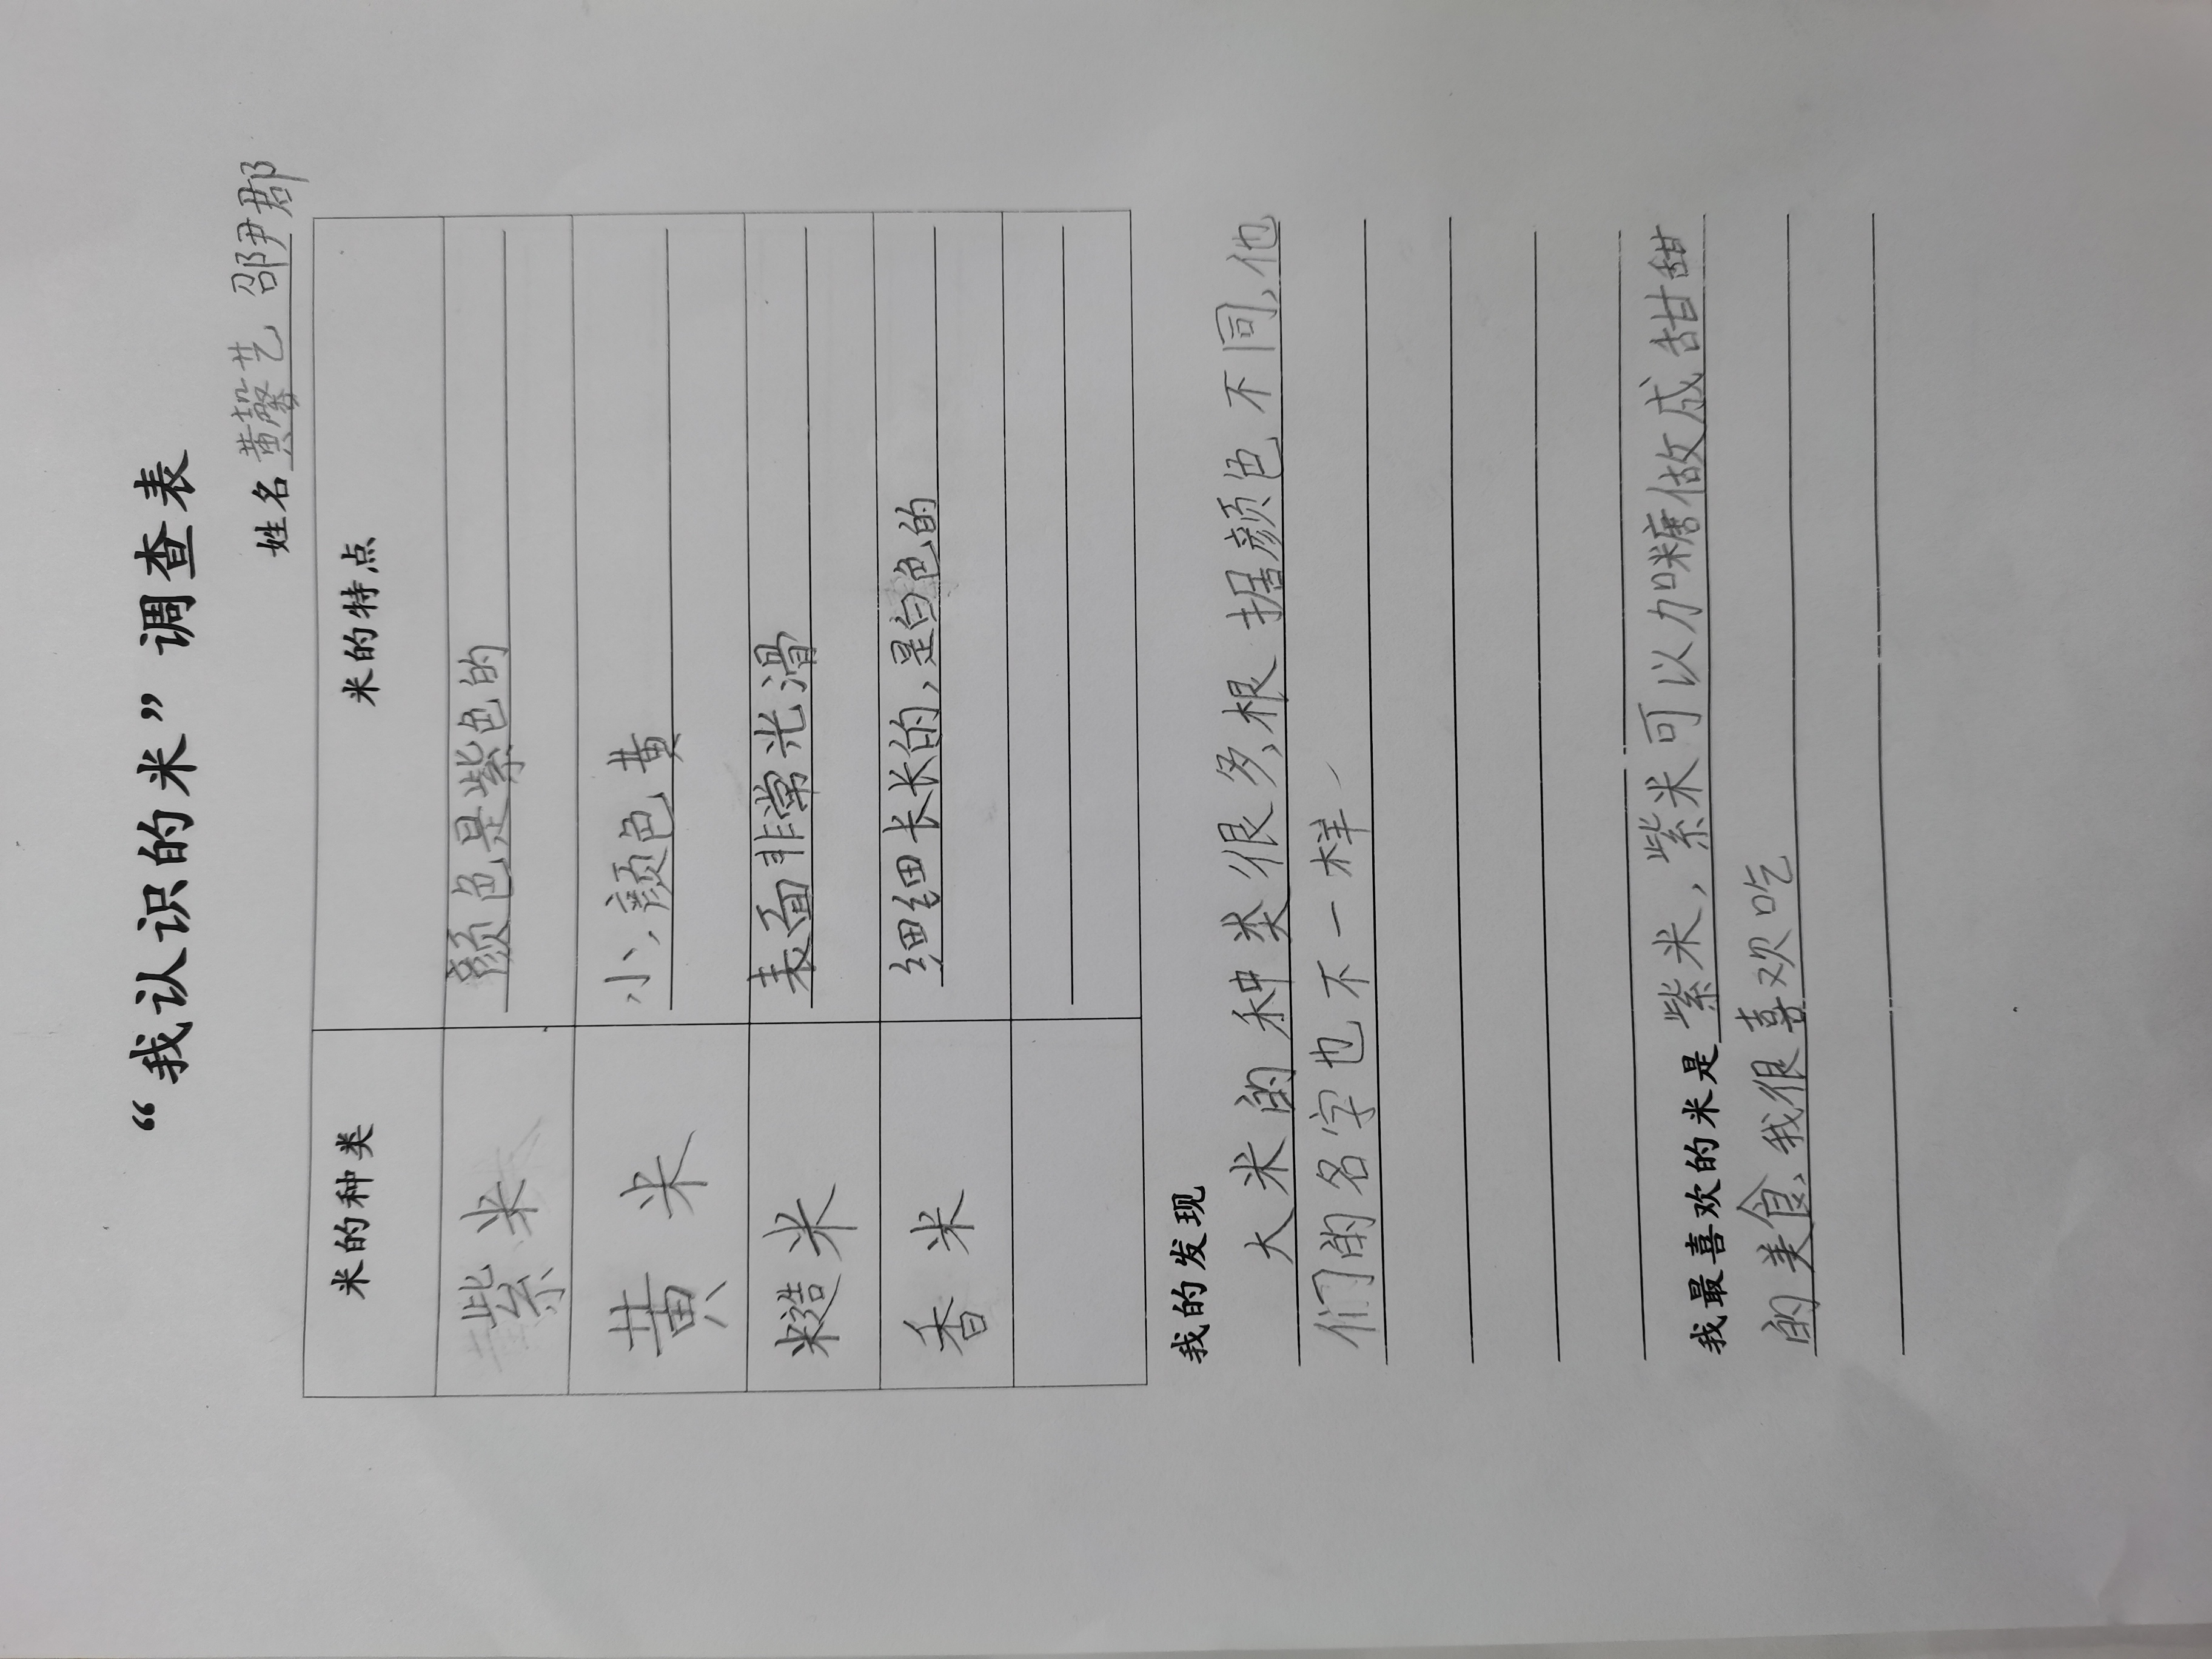 “我认识的米”调查表
姓名 黄馨艺 邵尹郡
米的种类 米的特点
紫米 颜色是紫色的
黄米 小、颜色黄
糙米 表面非常光滑
香米 细细长长的,是白色的
我的发现
大米的种类很多,根据颜色不同,他
们的名字也不一样,
我最喜欢的米是 紫米,紫米可以加糖做成甜甜
的美食、我很喜欢吃